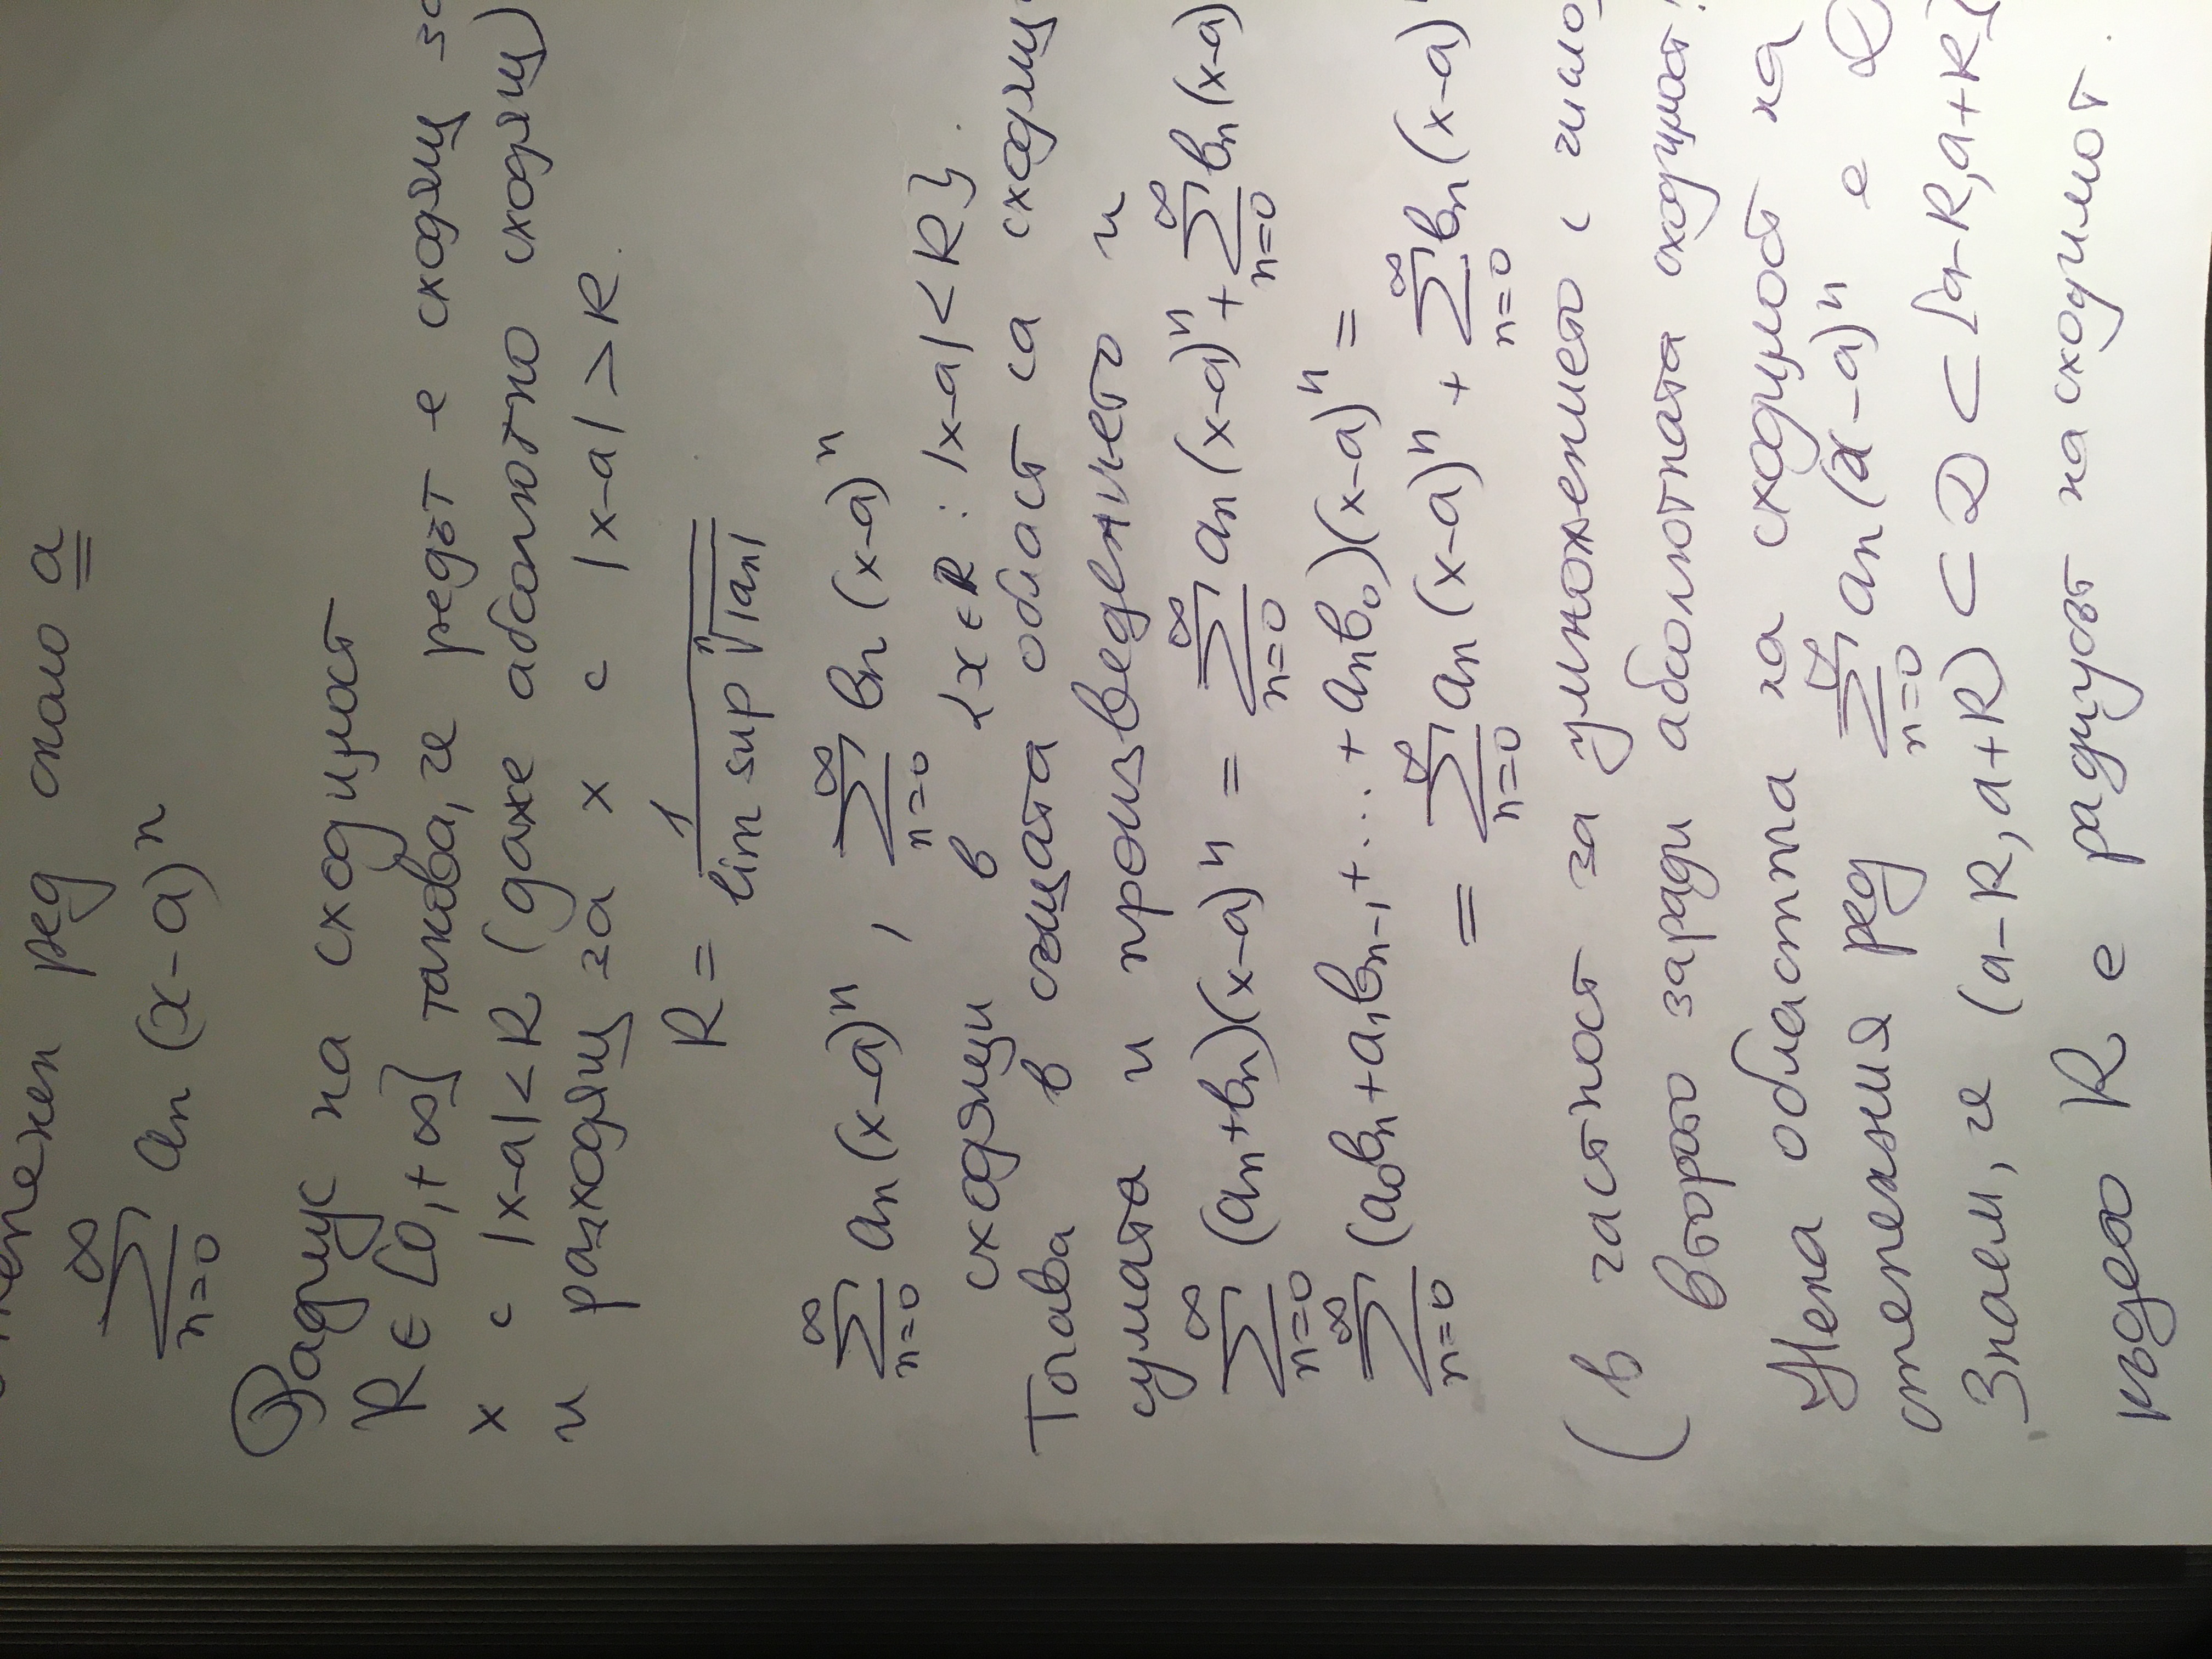 Степенен ред около a
∞
∑ aₙ (x-a)ⁿ
n=0
Радиус на сходимост
R ∈ [0,+∞] такова, че редът е сходящ за
x с |x-a|<R (даже абсолютно сходящ)
и разходящ за x с |x-a|>R.
R = 1 / lim sup ⁿ√|aₙ|
∞ ∞
∑ aₙ(x-a)ⁿ , ∑ bₙ(x-a)ⁿ
n=0 n=0
сходящи в {x∈ℝ : |x-a|<R}.
Тогава в същата област са сходящи
сумата и произведението и
∞ ∞ ∞
∑ (aₙ+bₙ)(x-a)ⁿ = ∑ aₙ(x-a)ⁿ + ∑ bₙ(x-a)
n=0 n=0 n=0
∞
∑ (a₀bₙ+a₁bₙ₋₁+...+aₙb₀)(x-a)ⁿ =
n=0
∞ ∞
= ∑ aₙ(x-a)ⁿ + ∑ bₙ(x-a)ⁿ
n=0 n=0
(в частност за умножението с число,
второто заради абсолютната сходимост!
Нека областта на сходимост на
∞
степенния ред ∑ aₙ(x-a)ⁿ е D
n=0
Знаем, че (a-R, a+R) ⊂ D ⊂ [a-R, a+R]
където R е радиусът на сходимот.